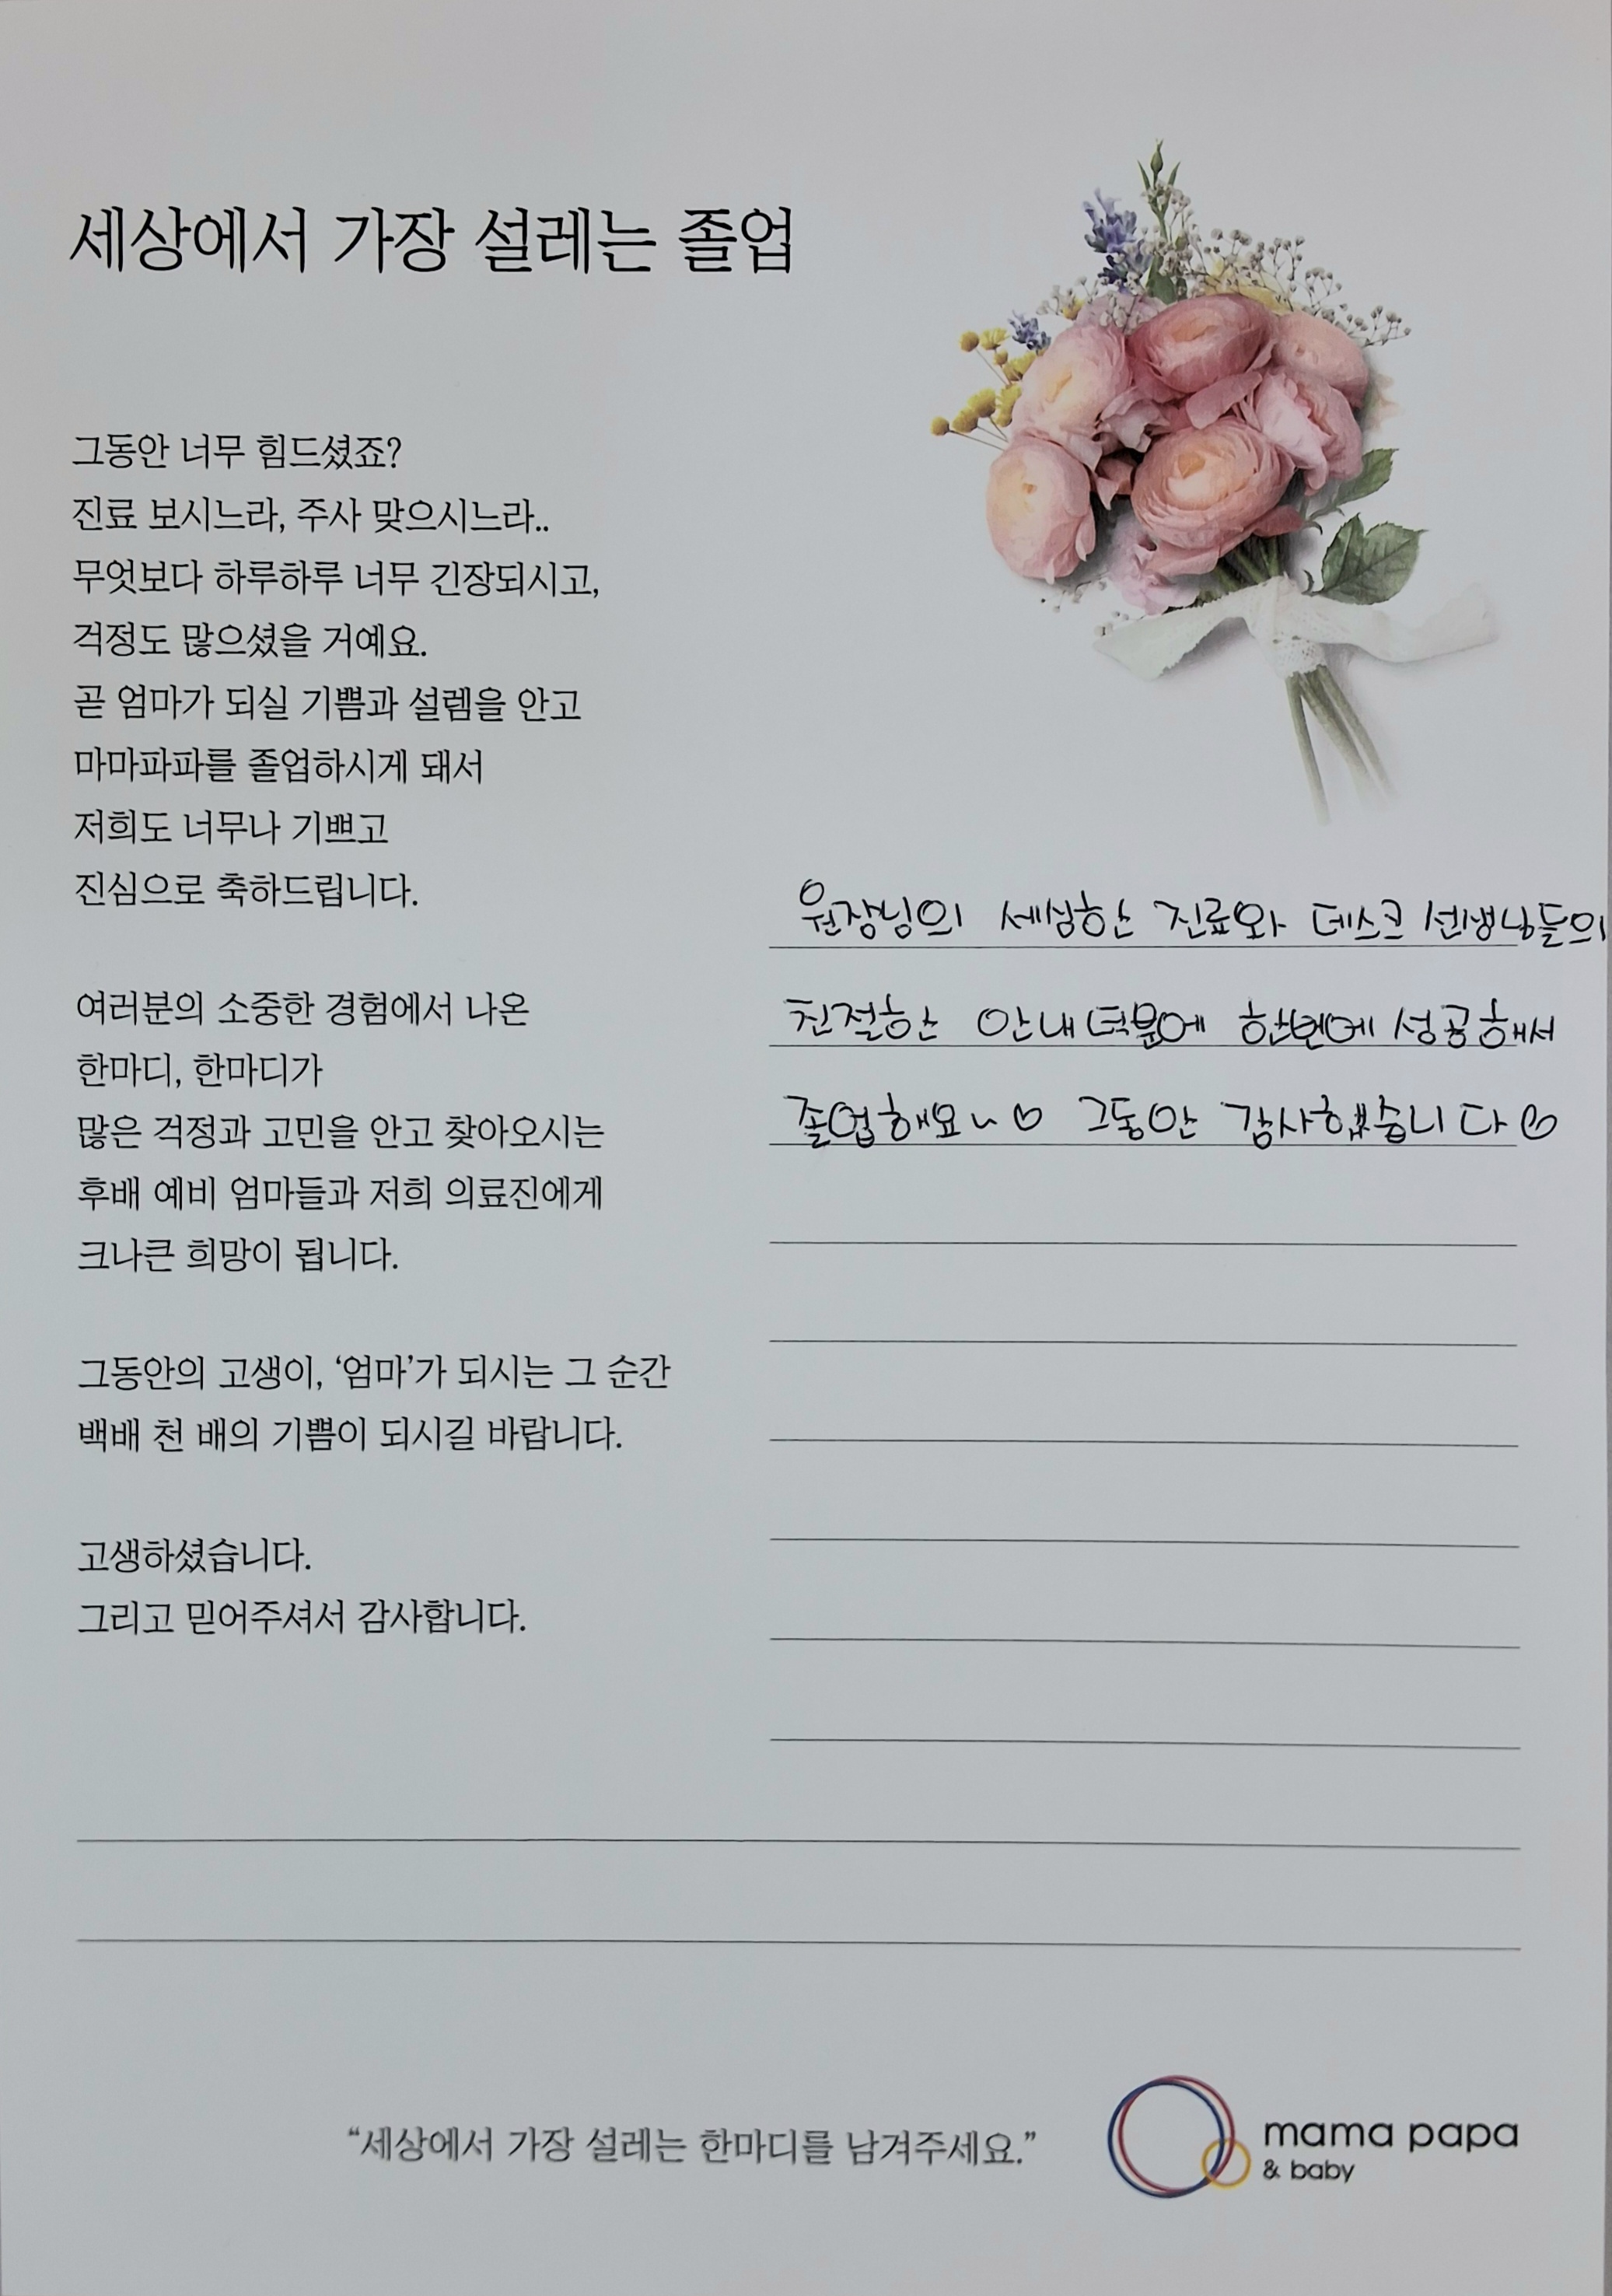 세상에서 가장 설레는 졸업
그동안 너무 힘드셨죠?
진료 보시느라, 주사 맞으시느라..
무엇보다 하루하루 너무 긴장되시고,
걱정도 많으셨을 거예요.
곧 엄마가 되실 기쁨과 설렘을 안고
마마파파를 졸업하시게 돼서
저희도 너무나 기쁘고
진심으로 축하드립니다.
여러분의 소중한 경험에서 나온
한마디, 한마디가
많은 걱정과 고민을 안고 찾아오시는
후배 예비 엄마들과 저희 의료진에게
크나큰 희망이 됩니다.
그동안의 고생이, ‘엄마’가 되시는 그 순간
백배 천 배의 기쁨이 되시길 바랍니다.
고생하셨습니다.
그리고 믿어주셔서 감사합니다.
원장님의 세심한 진료와 데스크 선생님들의
친절한 안내 덕분에 한번에 성공해서
졸업해요~♡ 그동안 감사했습니다♡
“세상에서 가장 설레는 한마디를 남겨주세요.”
mama papa
& baby